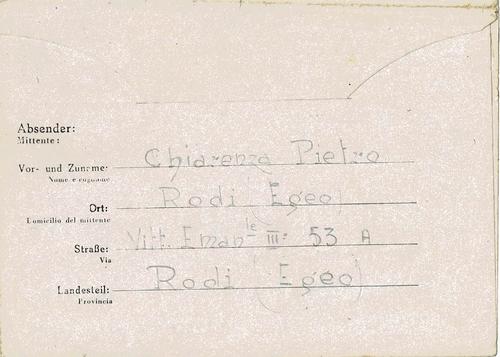 Absender:
Mittente:
Vor- und Zuname: Chiarenza Pietro
Nome e cognome
Ort: Rodi (Egeo)
Domicilio del mittente
Straße: Vitt. Eman^le III° 53 A
Via
Landesteil: Rodi (Egeo)
Provincia